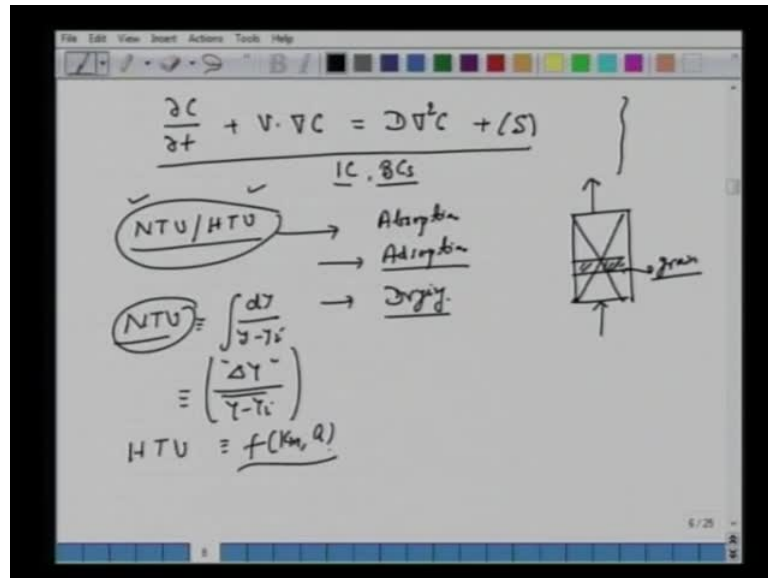 File Edit View Insert Actions Tools Help
∂C/∂t + V·∇C = D∇²C + (S)
IC, BCs
NTU/HTU → Absorption
→ Adsorption
→ Drying.
grain
NTU ≡ ∫ dY/(Y-Yi)
≡ ("ΔY"/(Y-Yi))
HTU ≡ f(Km, Q)
6/25
6